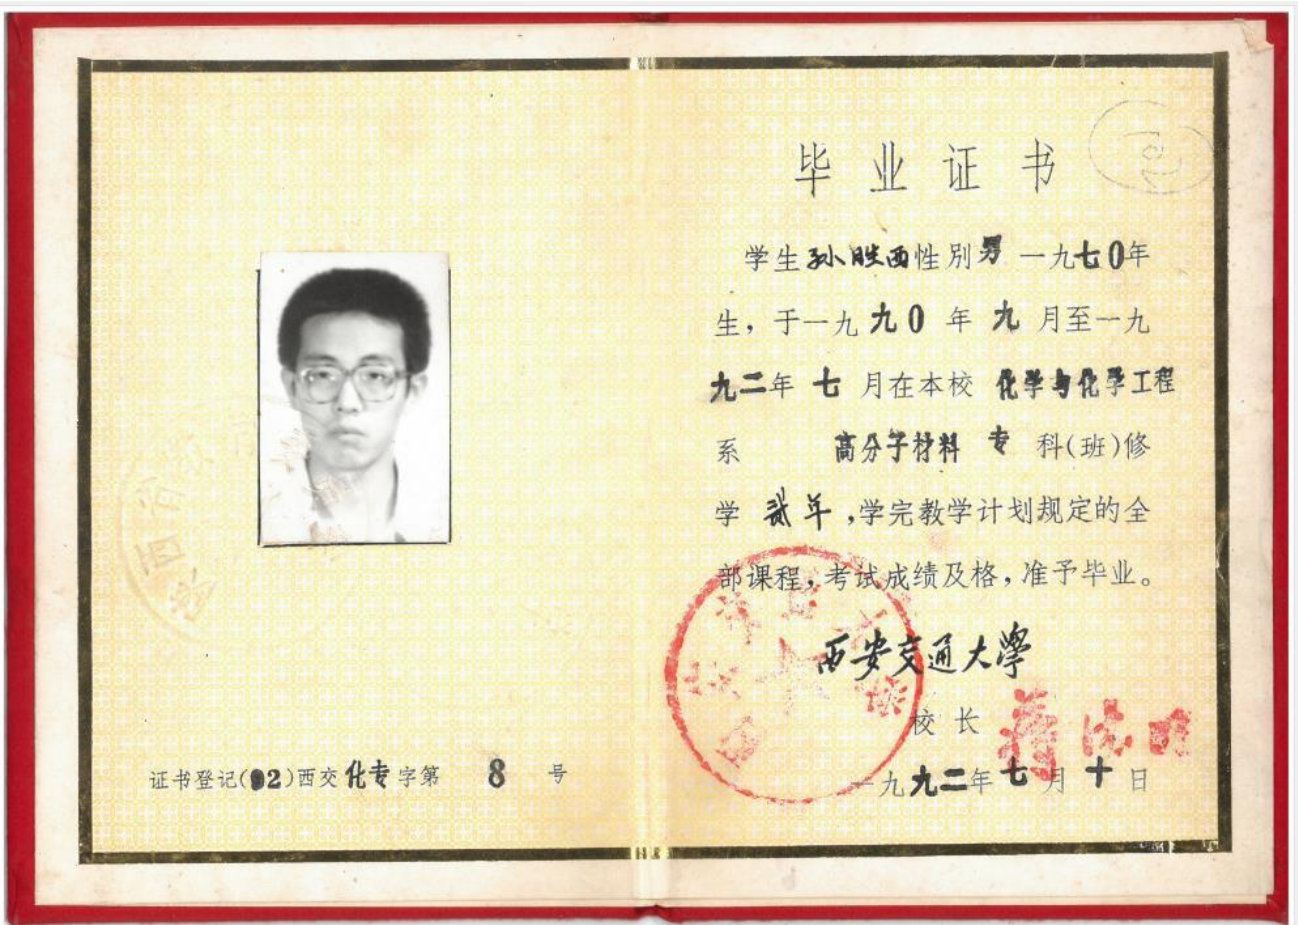 毕业证书
学生孙胜西性别男一九七0年
生，于一九九0年九月至一九
九二年七月在本校化学与化学工程
系 高分子材料 专 科(班)修
学贰年，学完教学计划规定的全
部课程，考试成绩及格，准予毕业。
西安交通大學
校长 蒋德明
一九九二年七月十日
证书登记(92)西交化专字第 8 号